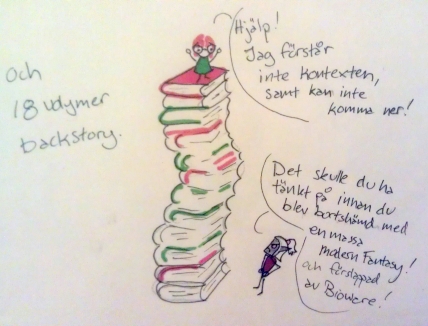 Och
18 volymer
backstory.
Hjälp!
Jag förstår
inte kontexten,
samt kan inte
komma ner!
Det skulle du ha
tänkt på innan du
blev bortskämd med
en massa
modern Fantasy!
och förslappad
av Bioware!